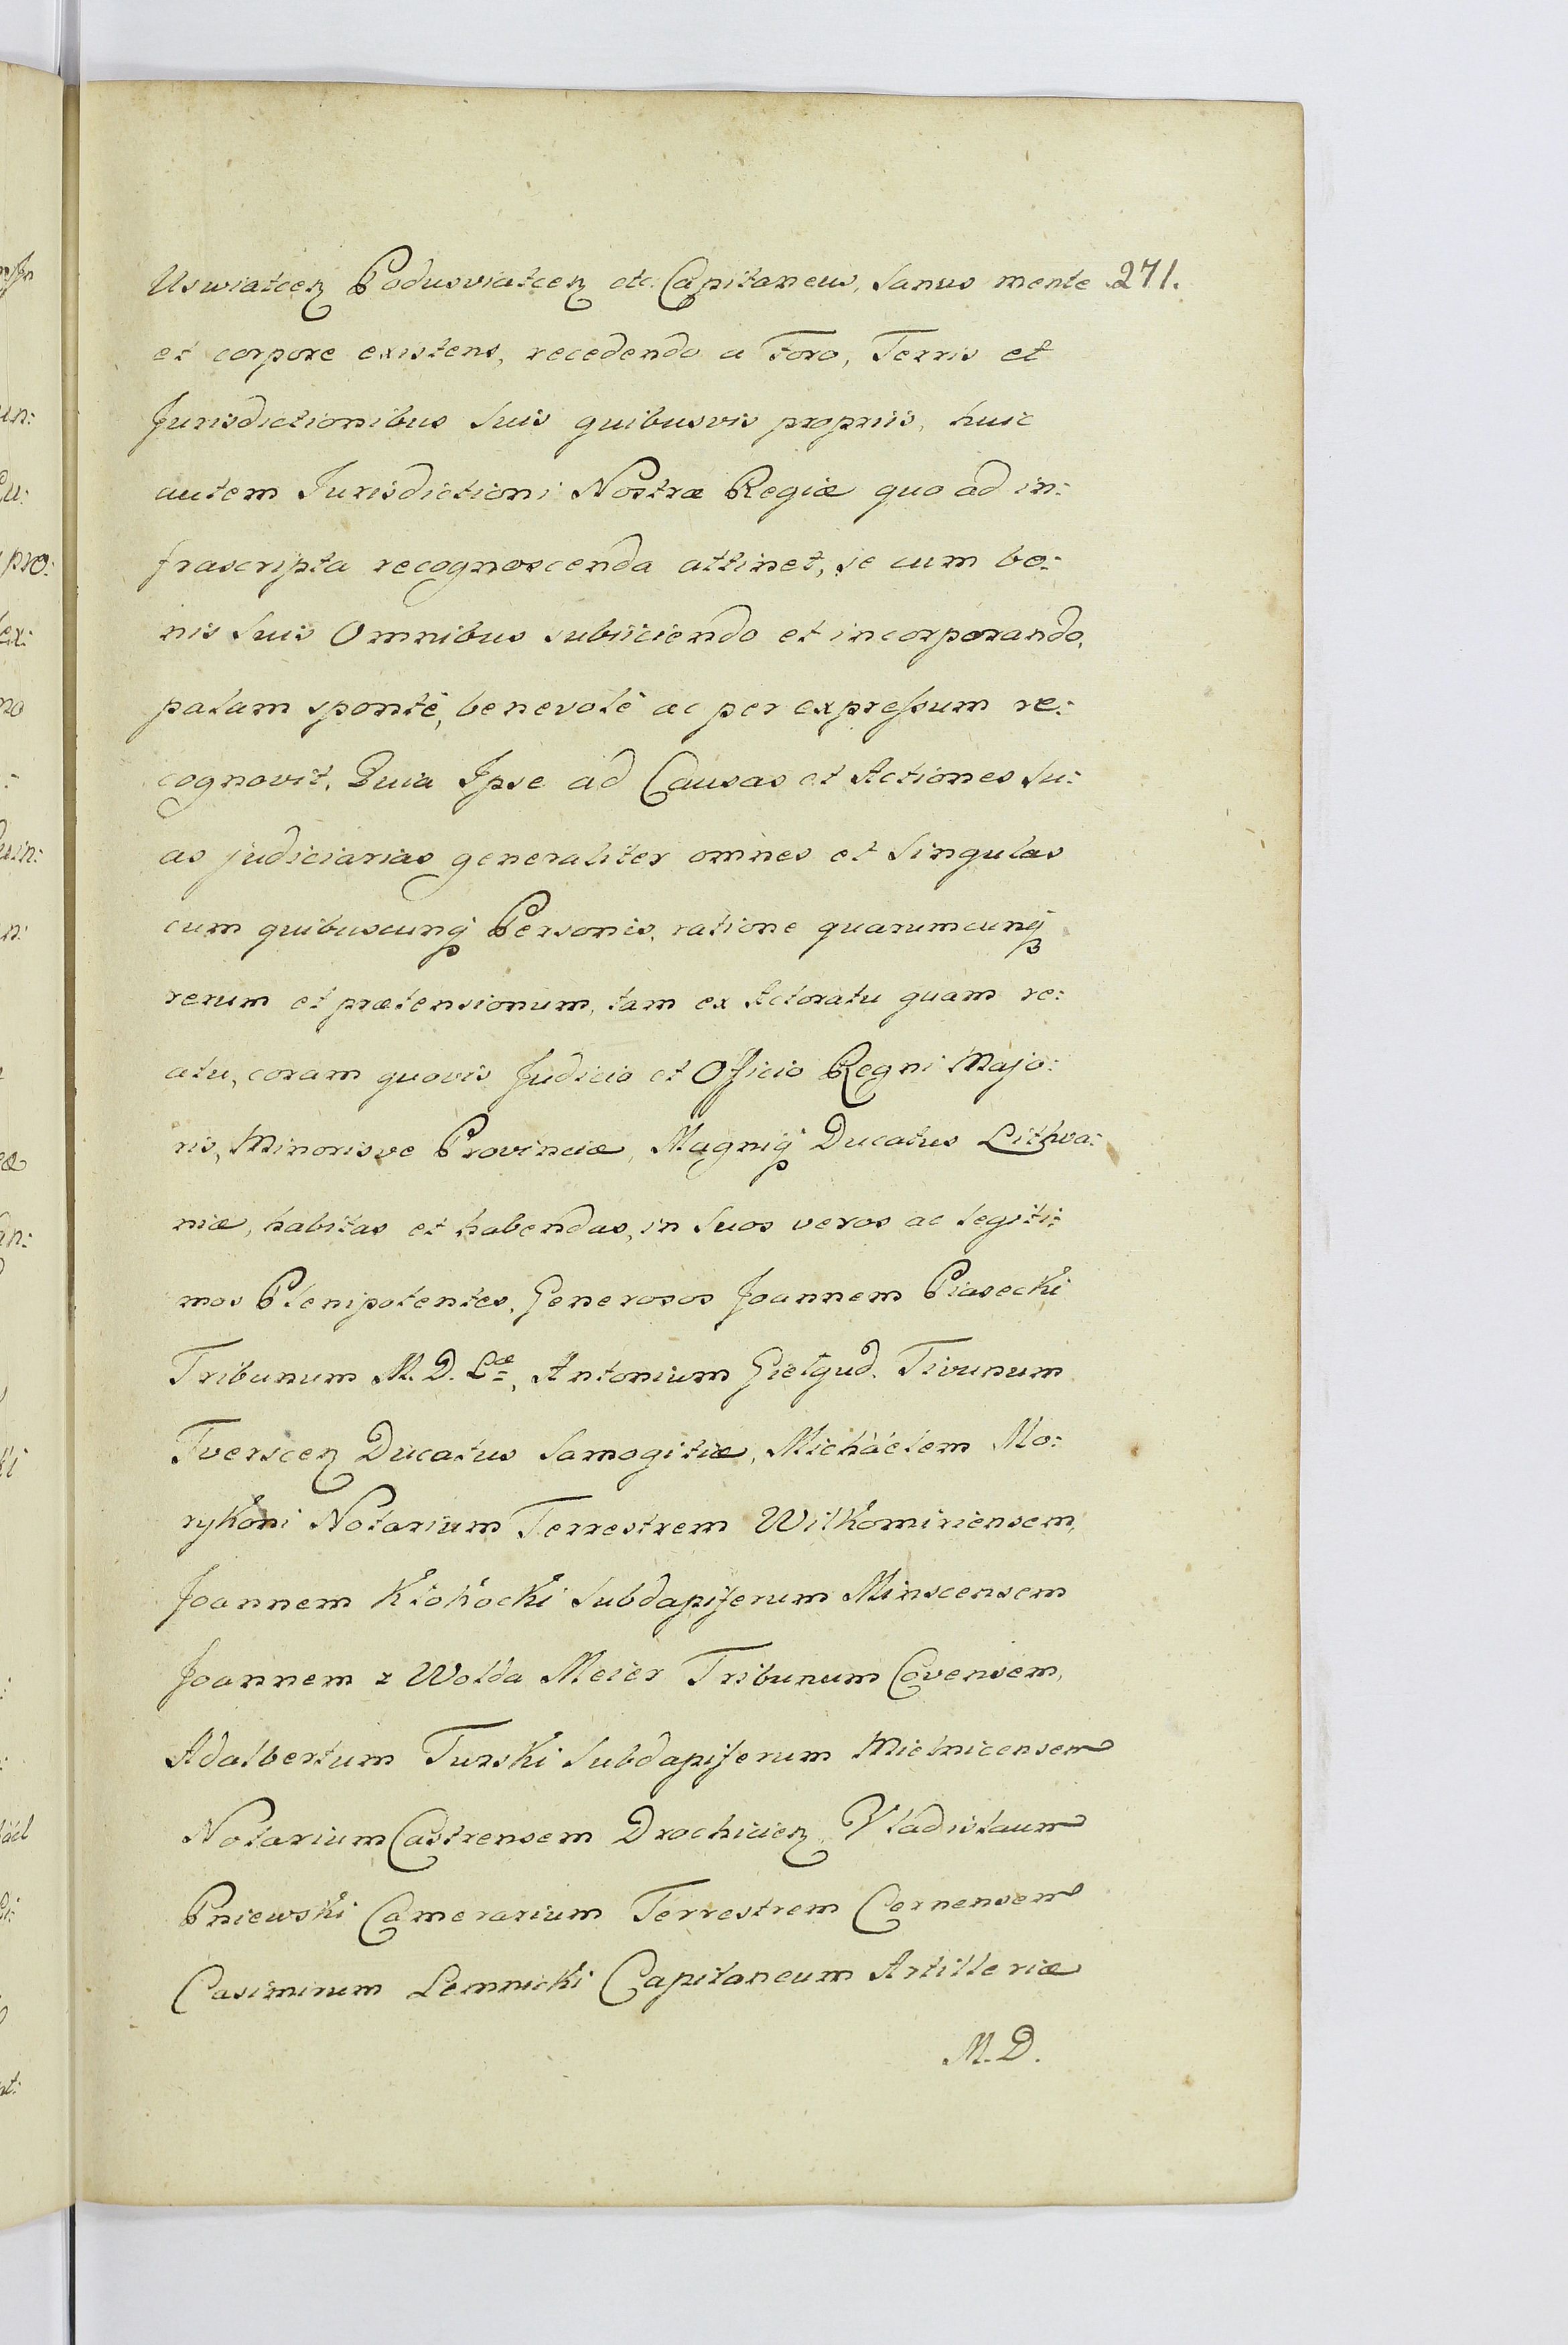 Uswiatcen Podusviatcen etc. Capitaneus, Sanus mente 271.
et corpore existens, recedendo a Foro, Terris et
Jurisdictionibus Suis quibusvis propriis, huic
autem Jurisdictioni Nostræ Regiæ quo ad in:
frascripta recognoscenda attinet, se cum bo:
nis Suis Omnibus subiiciendo et incorporando,
palam sponte, benevole ac per expressum re:
cognovit, Quia Ipse ad Causas et Actiones Su:
as judiciarias generaliter omnes et Singulas
cum quibuscunq Personis, ratione quarumcunq
rerum et prætensionum, tam ex Actoratu quam re:
atu, coram quovis Judicio et Officio Regni Majo:
ris, Minorisve Provinciæ, Magniq Ducatus Lithva:
niæ, habitas et habendas, in Suos veros ac legiti:
mos Plenipotentes, Generosos Joannem Piasecki
Tribunum M. D. Læ, Antonium Giełgud. Tivunum
Tverscen Ducatus Samogitiæ, Michaelem Mo:
rykoni Notarium Terrestrem Wilkomiriensem,
Joannem Kłokocki Subdapiferum Minscensem
Joannem z Wolda Meier Tribunum Covensem,
Adalbertum Turski Subdapiferum Mielnicensem
Notarium Castrensem Drochicien, Vladislaum
Pniewski Camerarium Terrestrem Cernensem
Casimirum Lemnicki Capitaneum Artilleriæ
M. D.